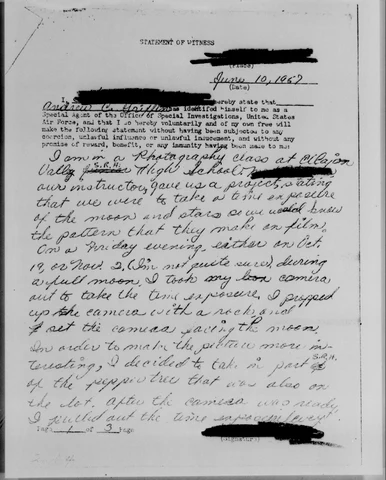 STATEMENT OF WITNESS
(Place)
June 10, 1957
(Date)
I hereby state that
Andrew C. identified himself to me as a
Special Agent of the Office of Special Investigations, United States
Air Force, and that I do hereby voluntarily and of my own free will
make the following statement without having been subjected to any
coercion, unlawful influence or unlawful inducement, and without any
promise of reward, benefit, or any immunity having been made to me:
I am in a Photography class at El Cajon
Valley High School
our instructor, gave us a project, stating
that we were to take a time exposure
of the moon and stars so we would know
the pattern that they make on film.
On a Friday evening either on Oct.
19, or Nov. 2, (I'm not quite sure), during
a full moon, I took my camera
out to take the time exposure. I propped
up the camera with a rock and
set the camera facing the moon.
In order to make the picture more in-
teresting, I decided to take in part
of the pepper tree that was also on
the lot. After the camera was ready
I pulled out the time exposure lever".
Page 1 of 3 Page
(Signature)